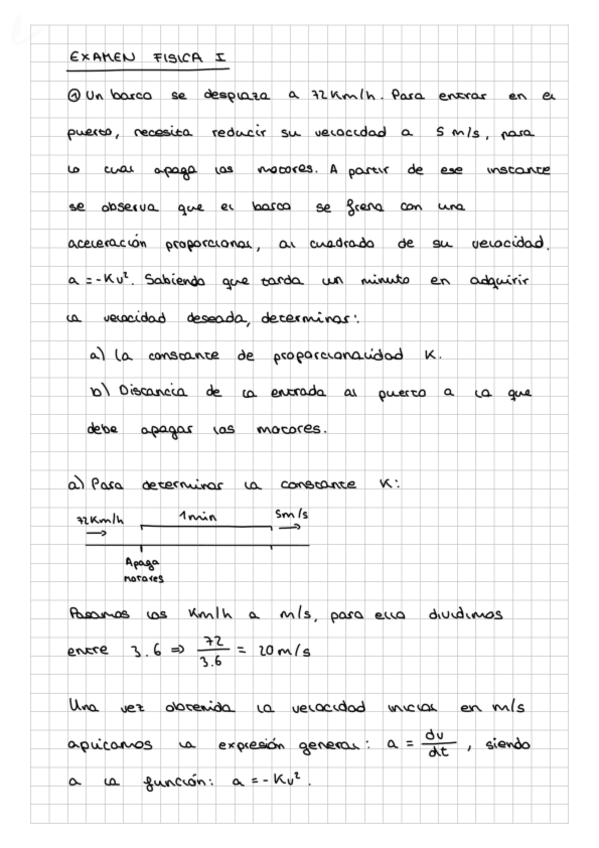 EXAMEN FISICA I
① Un barco se desplaza a 72 Km/h. Para entrar en el
puerto, necesita reducir su velocidad a 5 m/s, para
lo cual apaga los motores. A partir de ese instante
se observa que el barco se frena con una
aceleración proporcional, al cuadrado de su velocidad.
a = -Kv². Sabiendo que tarda un minuto en adquirir
la velocidad deseada, determinar:
a) la constante de proporcionalidad K.
b) Distancia de la entrada al puerto a la que
debe apagar los motores.
a) Para determinar la constante K:
72 Km/h 1 min 5m/s
Apaga
motores
Pasamos los Km/h a m/s, para ello dividimos
entre 3.6 ⇒ 72/3.6 = 20 m/s
Una vez obtenida la velocidad inicial en m/s
aplicamos la expresión general: a = dv/dt, siendo
a la función: a = -Kv².